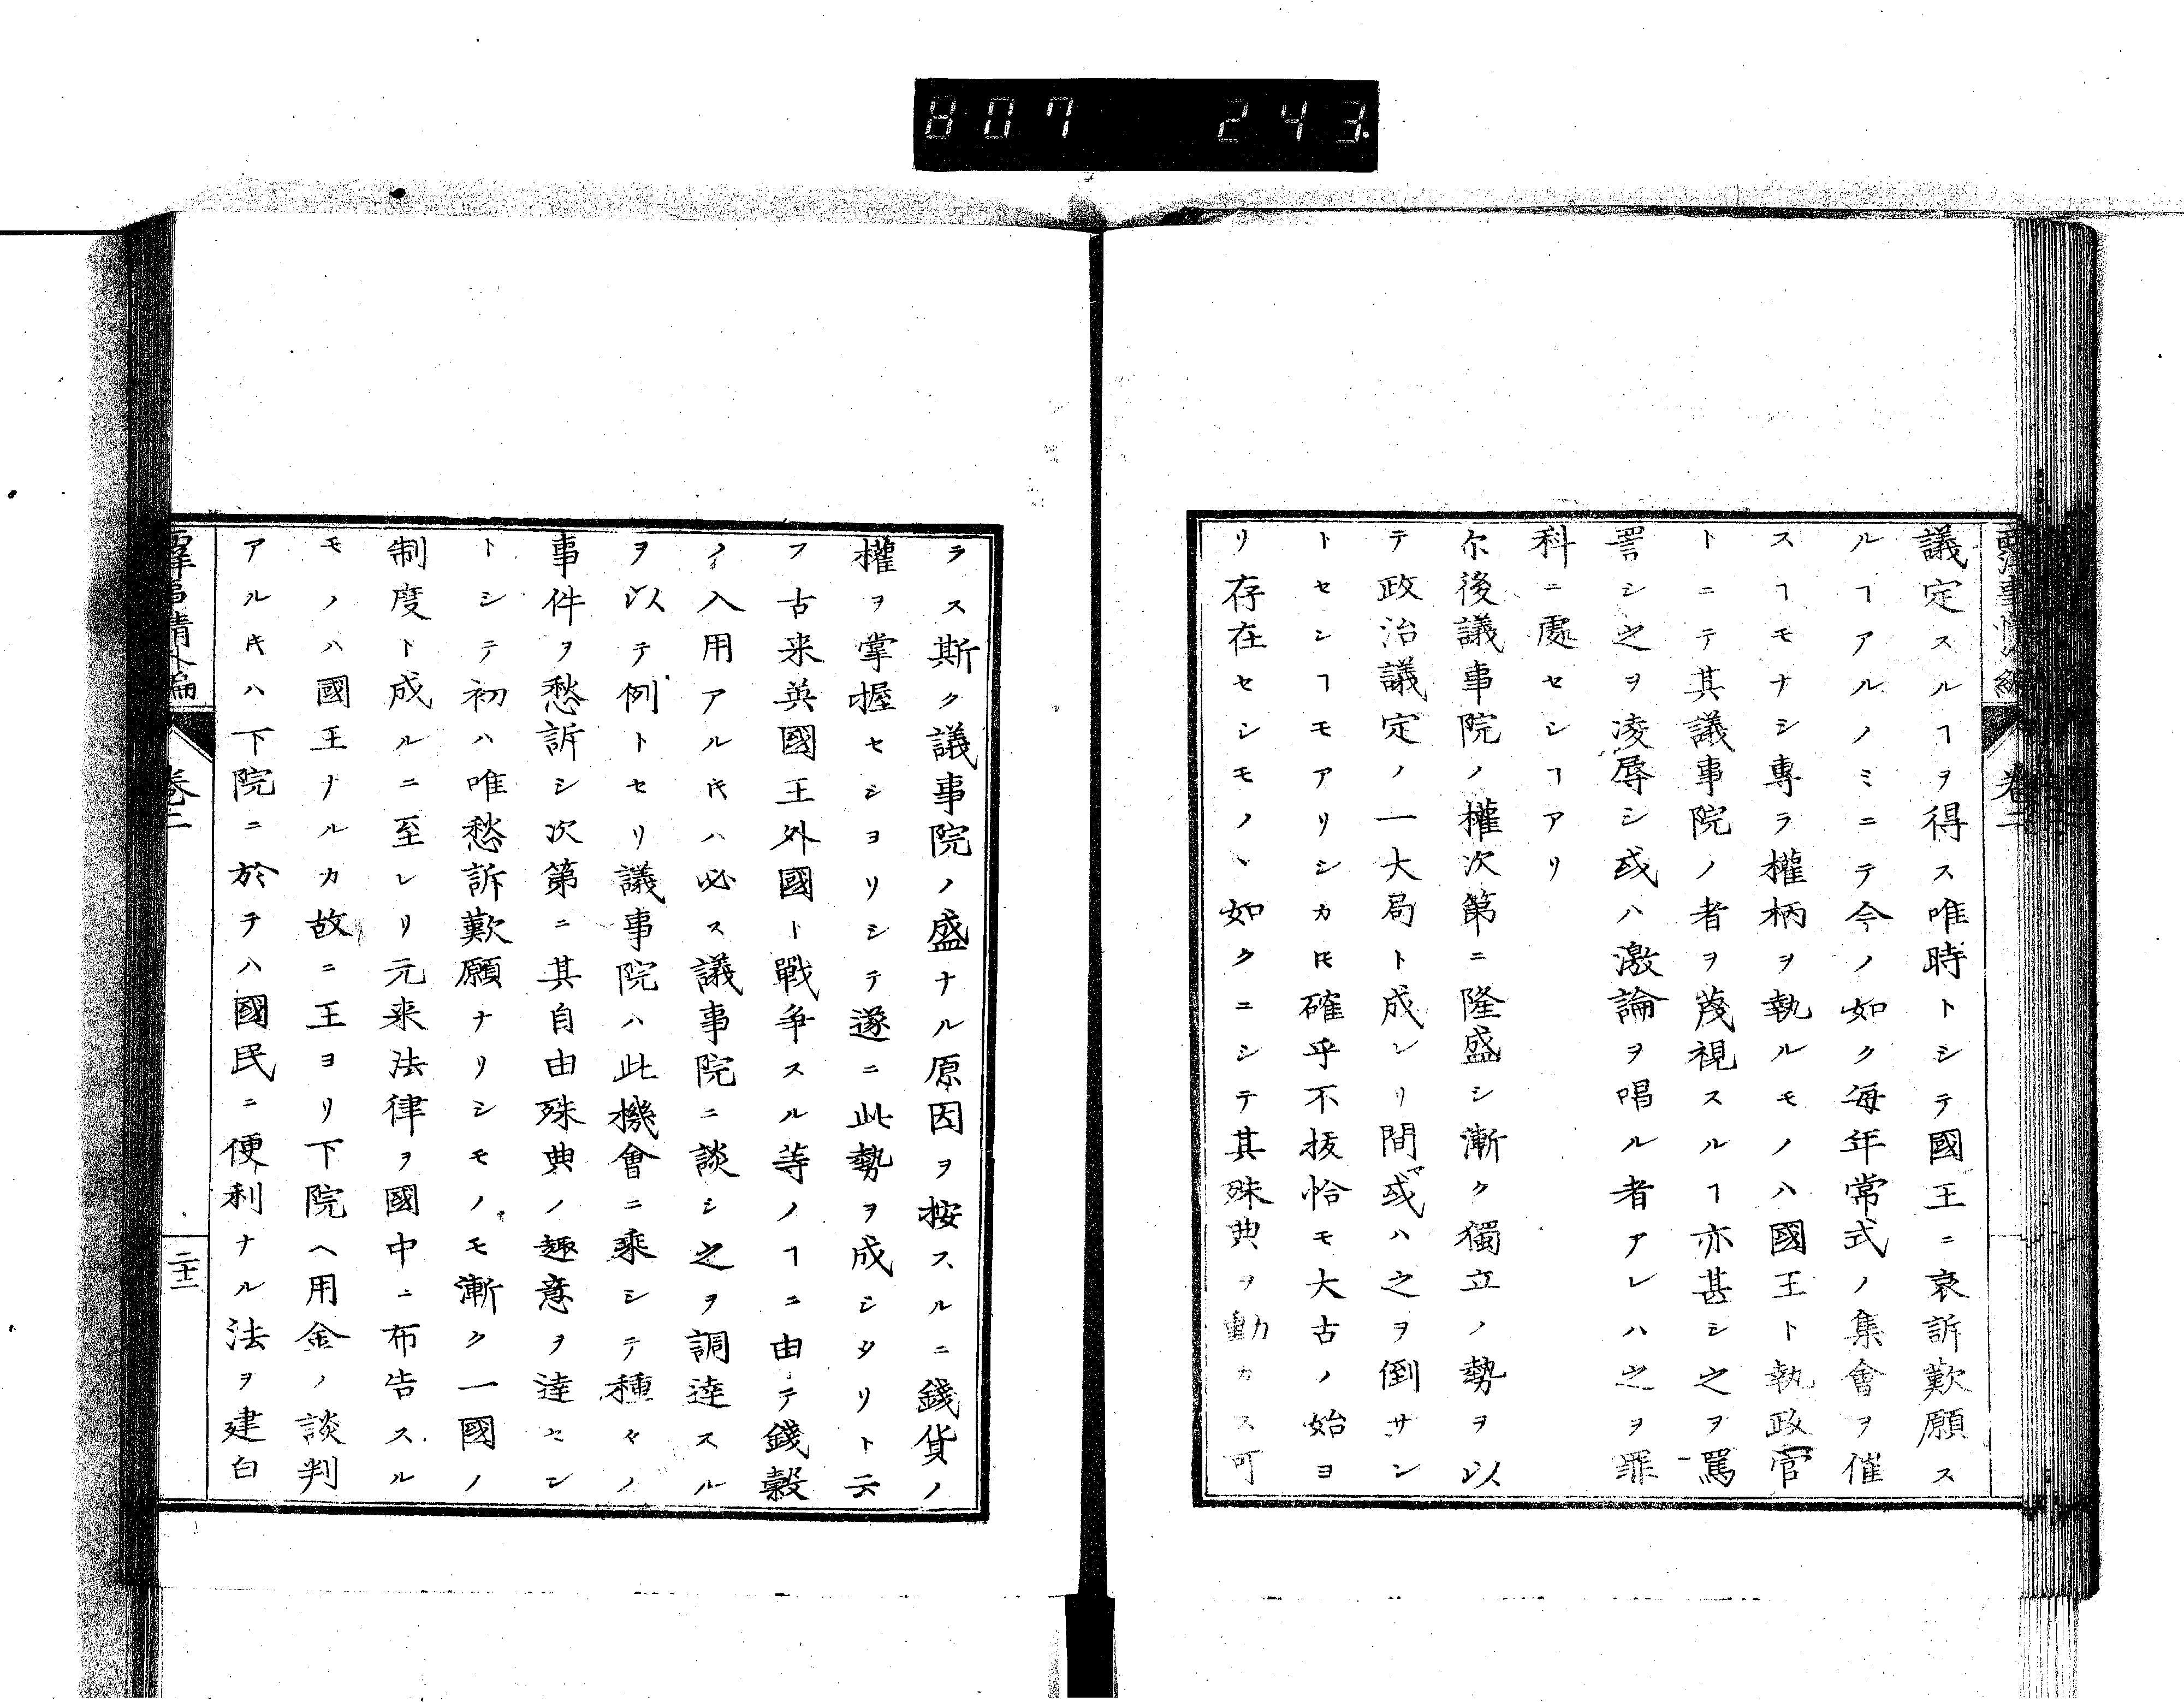 807 243
西洋事情外編 卷二
議定スルヿヲ得ス唯時トシテ國王ニ哀訴歎願ス
ルヿアルノミニテ今ノ如ク毎年常式ノ集會ヲ催
スヿモナシ專ラ權柄ヲ執ルモノハ國王ト執政官
トニテ其議事院ノ者ヲ蔑視スルヿ亦甚シ之ヲ罵
詈シ之ヲ凌辱シ或ハ激論ヲ唱ル者アレハ之ヲ罪
科ニ處セシヿアリ
尓後議事院ノ權次第ニ隆盛シ漸ク獨立ノ勢ヲ以
テ政治議定ノ一大局ト成レリ間或ハ之ヲ倒サン
トセンヿモアリシカ𪜈確乎不拔恰モ大古ノ始ヨ
リ存在セシモノヽ如クニシテ其殊典ヲ動カス可
ラス斯ク議事院ノ盛ナル原因ヲ按スルニ錢貨ノ
權ヲ掌握セシヨリシテ遂ニ此勢ヲ成シタリト云
フ古来英國王外國ト戰争スル等ノヿニ由テ錢穀
ノ入用アル𪜈ハ必ス議事院ニ談シ之ヲ調達スル
ヲ以テ例トセリ議事院ハ此機會ニ乘シテ種々ノ
事件ヲ愁訴シ次第ニ其自由殊典ノ趣意ヲ達セン
トシテ初ハ唯愁訴歎願ナリシモノモ漸ク一國ノ
制度ト成ルニ至レリ元来法律ヲ國中ニ布告スル
モノハ國王ナルカ故ニ王ヨリ下院ヘ用金ノ談判
アル𪜈ハ下院ニ於テハ國民ニ便利ナル法ヲ建白
西洋事情外編 卷二 二十二